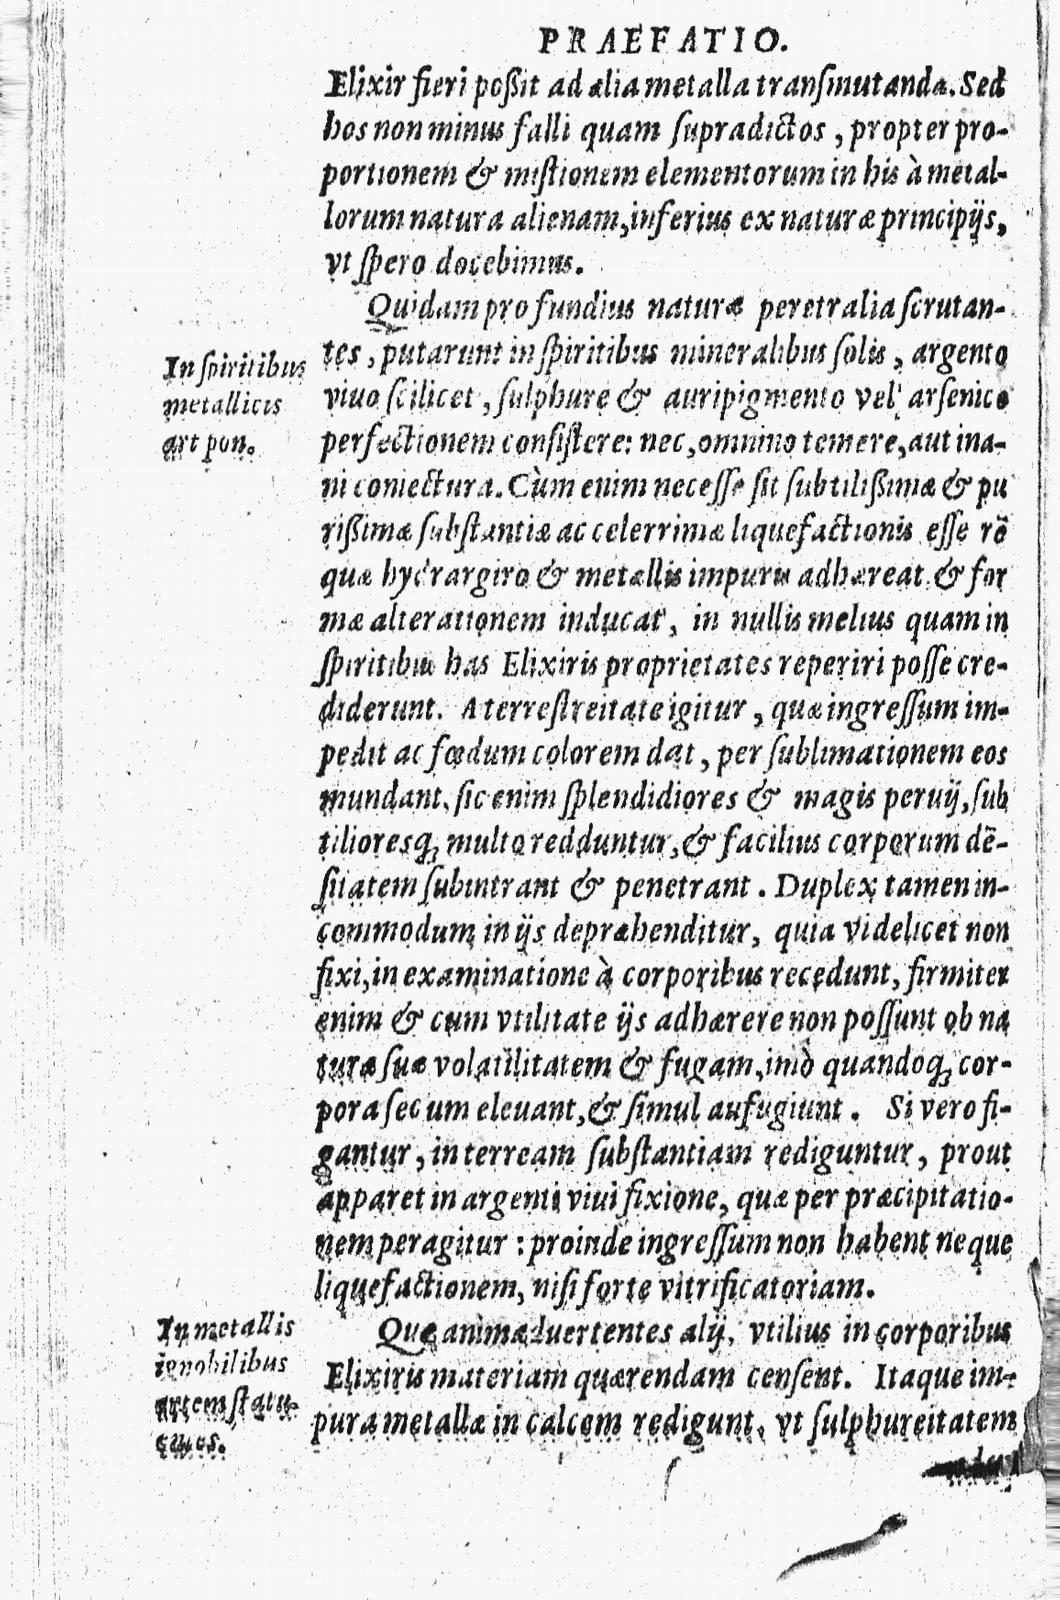 PRAEFATIO.
Elixir fieri poßit ad alia metalla transmutanda. Sed
hos non minus falli quam supradictos, propter pro-
portionem & mistionem elementorum in his à metal-
lorum natura alienam, inferius ex naturæ principijs,
vt spero docebimus.
Quidam profundius naturæ peretralia scrutan-
tes, putarunt in spiritibus mineralibus solis, argento
viuo scilicet, sulphure & auripigmento vel arsenico
perfectionem consistere: nec, omnino temere, aut ina-
ni coniectura. Cùm enim necesse sit subtilißimæ & pu
rißimæ substantiæ ac celerrimæ liquefactionis esse rē
quæ hydrargiro & metallis impuris adhæreat & for
mæ alterationem inducat, in nullis melius quam in
spiritibus has Elixiris proprietates reperiri posse cre-
diderunt. A terrestreitate igitur, quæ ingressum im-
pedit ac fœdum colorem dat, per sublimationem eos
mundant, sic enim splendidiores & magis peruij, sub
tilioresq; multo redduntur, & facilius corporum dē-
sitatem subintrant & penetrant. Duplex tamen in-
commodum in ijs depræhenditur, quia videlicet non
fixi, in examinatione à corporibus recedunt, firmiter
enim & cum vtilitate ijs adhærere non possunt ob na
turæ suæ volatilitatem & fugam, imò quandoq; cor-
pora secum eleuant, & simul aufugiunt. Si vero fi-
gantur, in terream substantiam rediguntur, prout
apparet in argenti viui fixione, quæ per præcipitatio-
nem peragitur: proinde ingressum non habent neque
liquefactionem, nisi forte vitrificatoriam.
Quæ animaduertentes alij, vtilius in corporibus
Elixiris materiam quærendam censent. Itaque im-
pura metalla in calcem redigunt, vt sulphureitatem
In spiritibus
metallicis
art pon.
In metallis
ignobilibus
artem statu